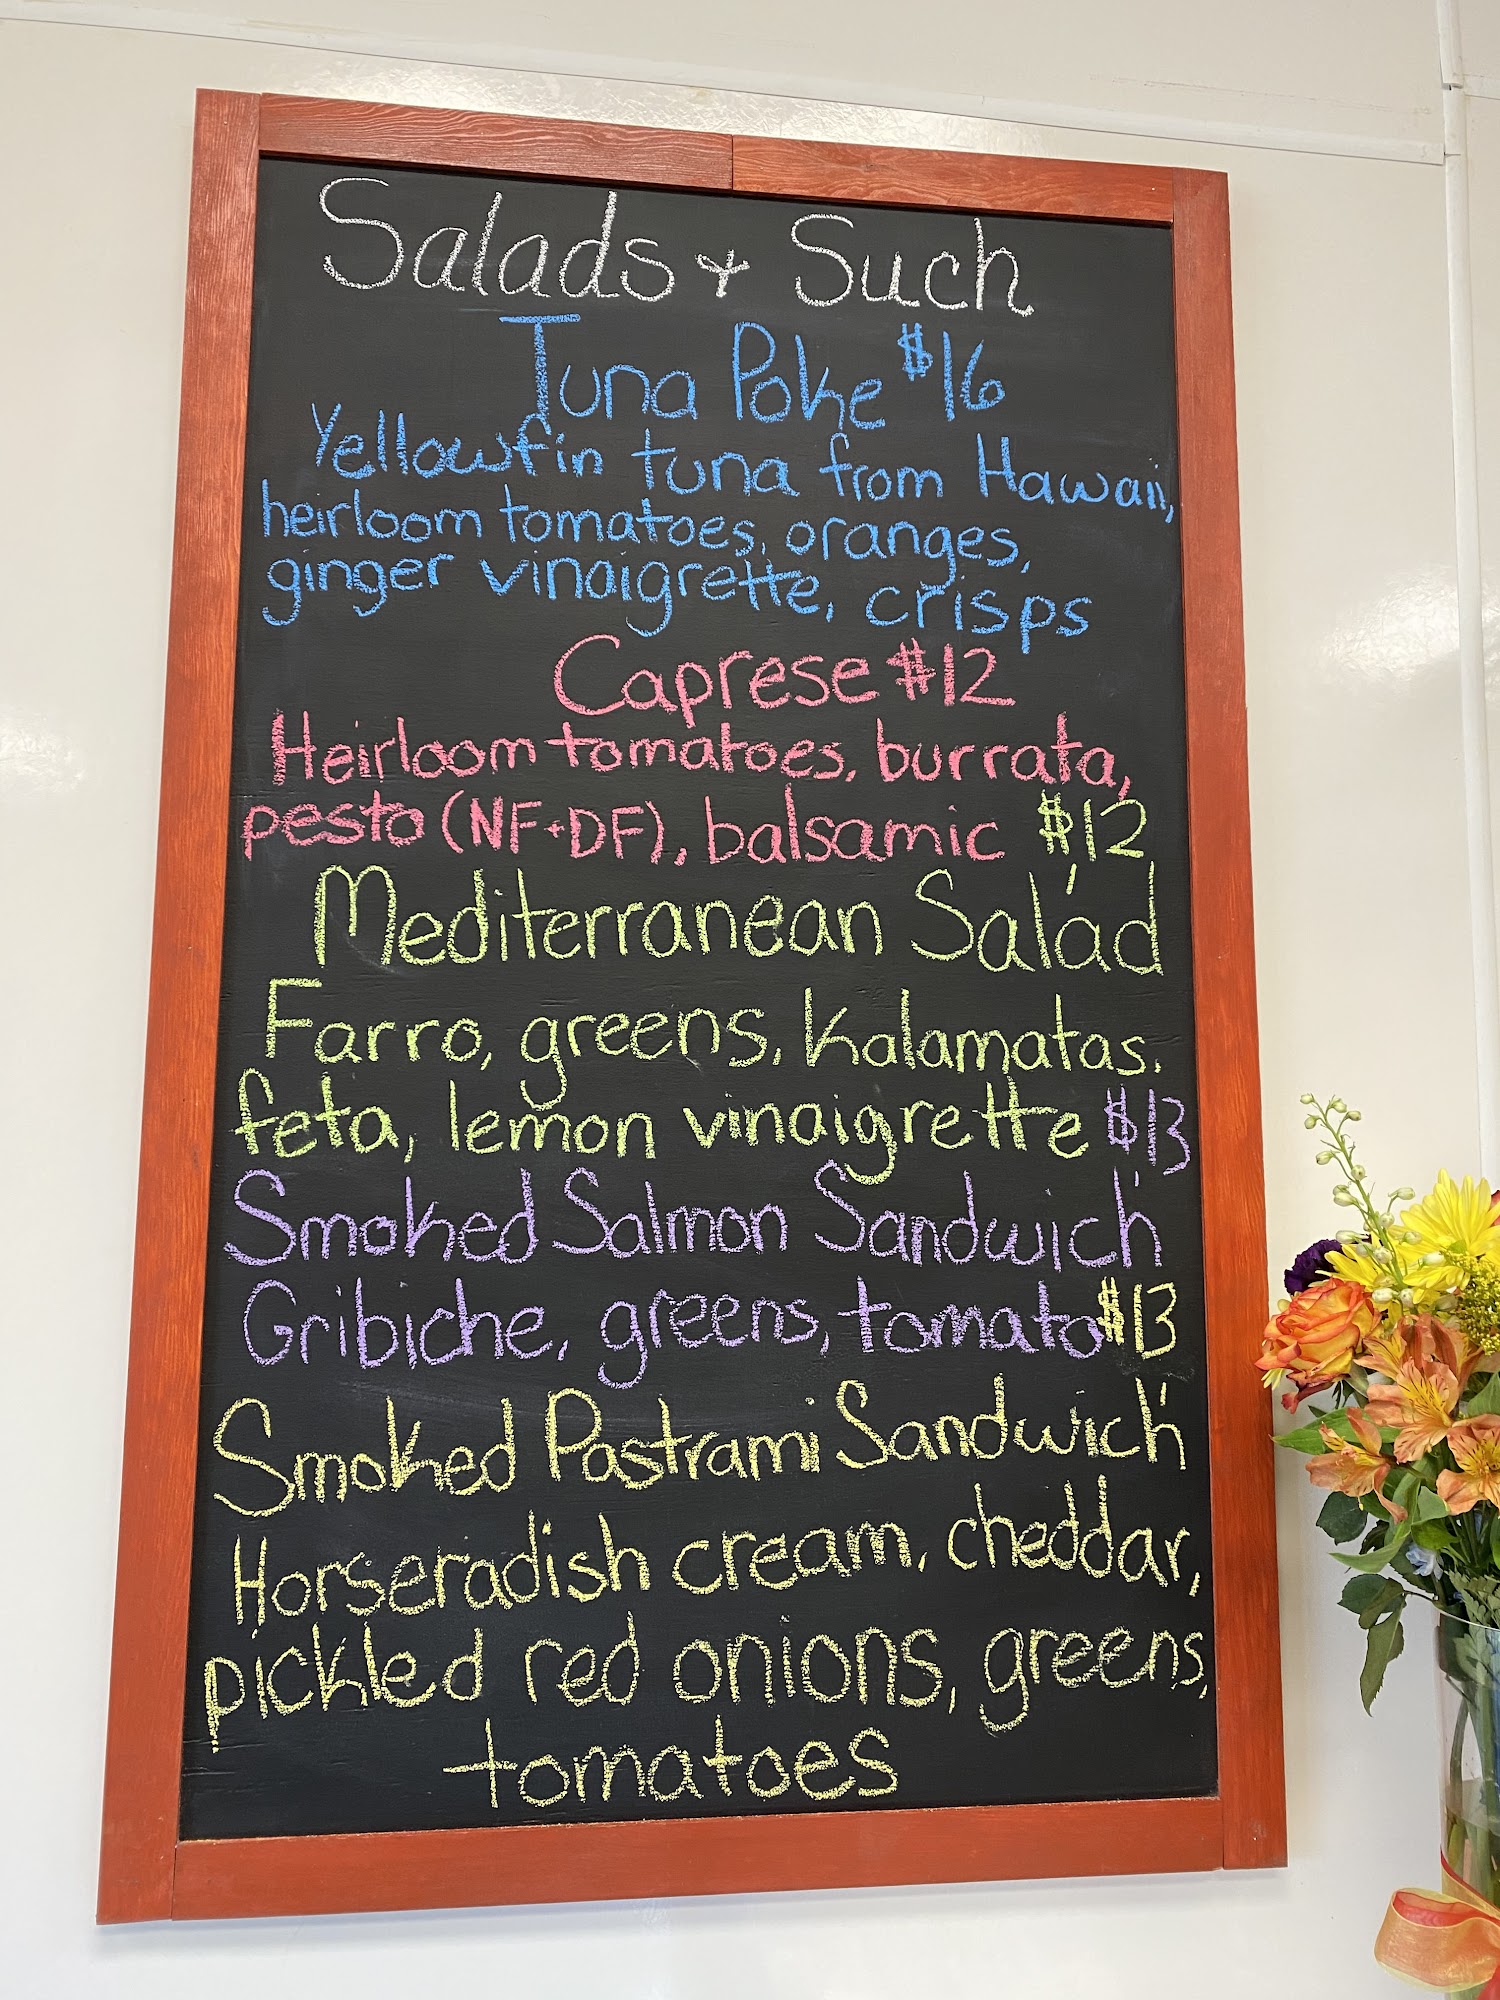 Salads + Such
Tuna Poke $16
Yellowfin tuna from Hawaii,
heirloom tomatoes, oranges,
ginger vinaigrette, crisps
Caprese $12
Heirloom tomatoes, burrata,
pesto (NF+DF), balsamic $12
Mediterranean Salad
Farro, greens, Kalamatas.
feta, lemon vinaigrette $13
Smoked Salmon Sandwich
Gribiche, greens, tomato $13
Smoked Pastrami Sandwich
Horseradish cream, cheddar,
pickled red onions, greens,
tomatoes